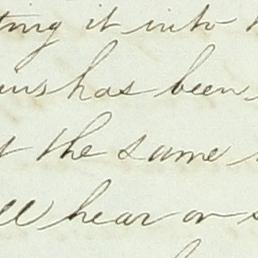 ting it into
has been
the same
hear or